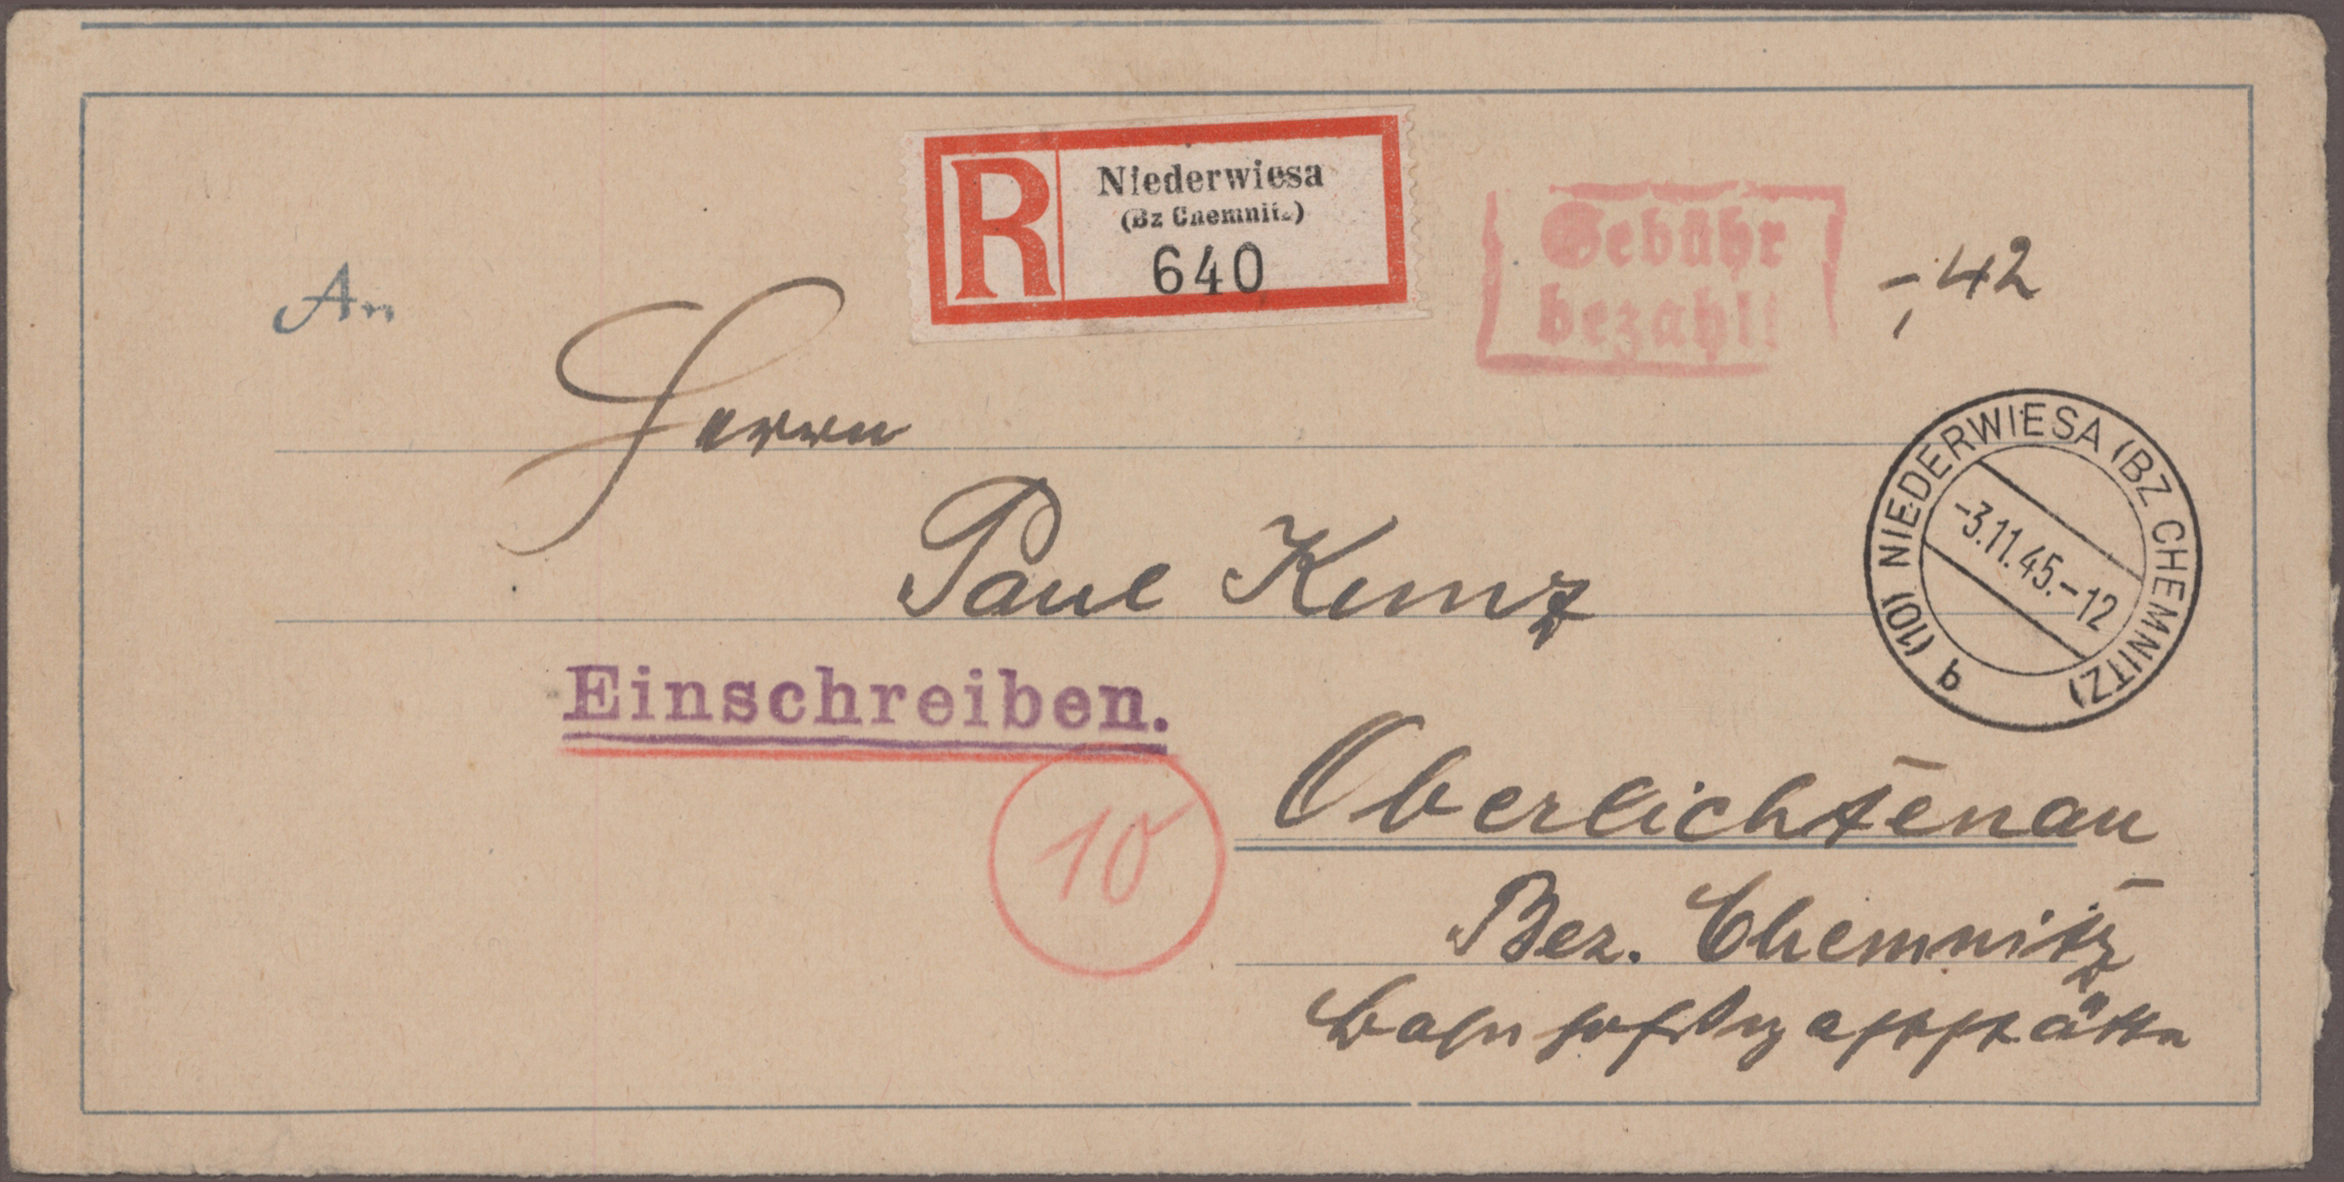 R
Niederwiesa
(Bz Chemnitz)
640
Gebühr
bezahlt
-,42
An
Herrn
Paul Kunz
b (10) NIEDERWIESA (BZ CHEMNITZ)
-3.11.45.-12
Einschreiben.
10
Oberlichtenau
Bez. Chemnitz